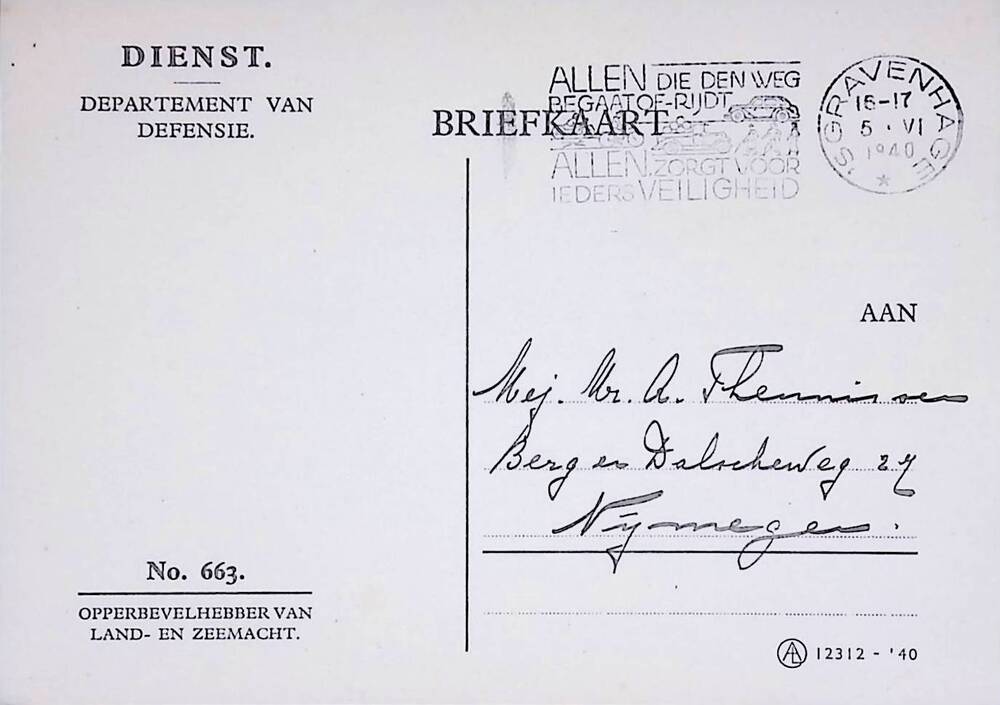 DIENST.
DEPARTEMENT VAN
DEFENSIE.
BRIEFKAART
ALLEN DIE DEN WEG
BEGAAT OF RIJDT
ALLEN ZORGT VOOR
IEDERS VEILIGHEID
'S GRAVENHAGE
16-17
5 · VI
1940
AAN
Mej. Mr. A. Theunissen
Berg en Dalscheweg 27
Nijmegen.
No. 663.
OPPERBEVELHEBBER VAN
LAND- EN ZEEMACHT.
12312 - '40